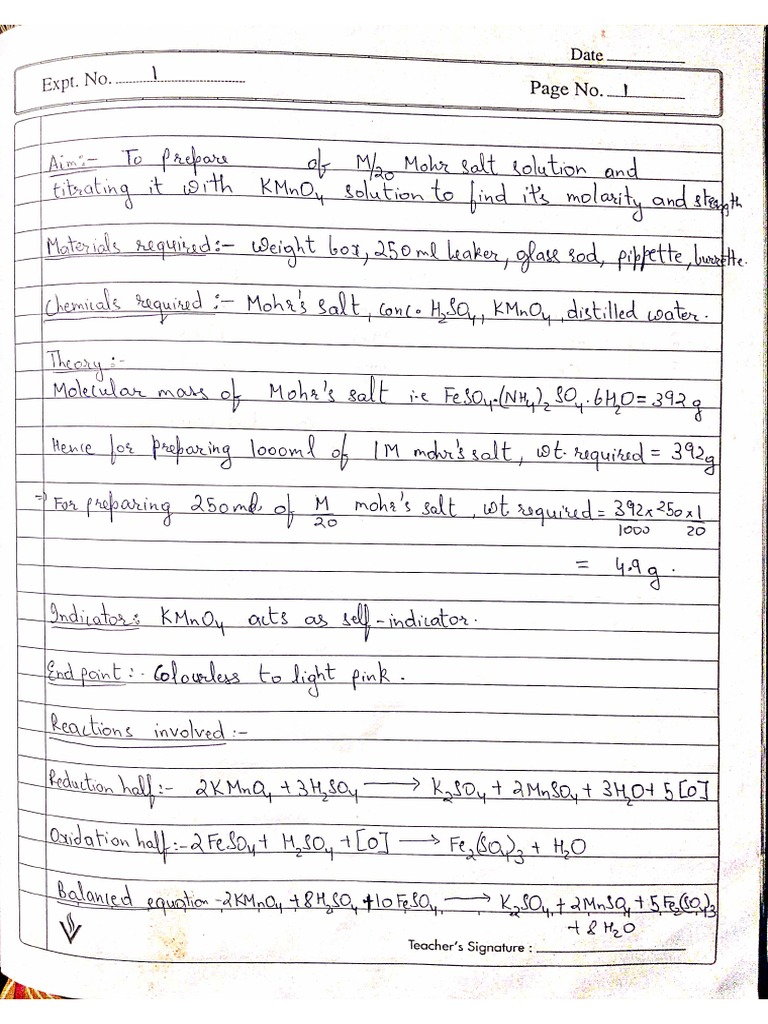 Date
Expt. No. 1
Page No. 1
Aim:- To prepare of M/20 Mohr salt solution and
titrating it with KMnO4 solution to find it's molarity and strength
Materials required:- Weight box, 250ml beaker, glass rod, pippette, burrette.
Chemicals required:- Mohr's salt, conc. H2SO4, KMnO4, distilled water.
Theory:-
Molecular mass of Mohr's salt i.e FeSO4.(NH4)2 SO4.6H2O = 392 g
Hence for preparing 1000ml of 1M mohr's salt, wt. required = 392g
⇒ For preparing 250ml. of M/20 mohr's salt, wt required = 392 x 250/1000 x 1/20
= 4.9 g.
Indicator: KMnO4 acts as self-indicator.
End point:- Colourless to light pink.
Reactions involved:-
Reduction half:- 2KMnO4 + 3H2SO4 ⟶ K2SO4 + 2MnSO4 + 3H2O + 5[O]
Oxidation half:- 2FeSO4 + H2SO4 + [O] ⟶ Fe2(SO4)3 + H2O
Balanced equation - 2KMnO4 + 8H2SO4 + 10FeSO4 ⟶ K2SO4 + 2MnSO4 + 5Fe2(SO4)3
+ 8H2O
Teacher's Signature :